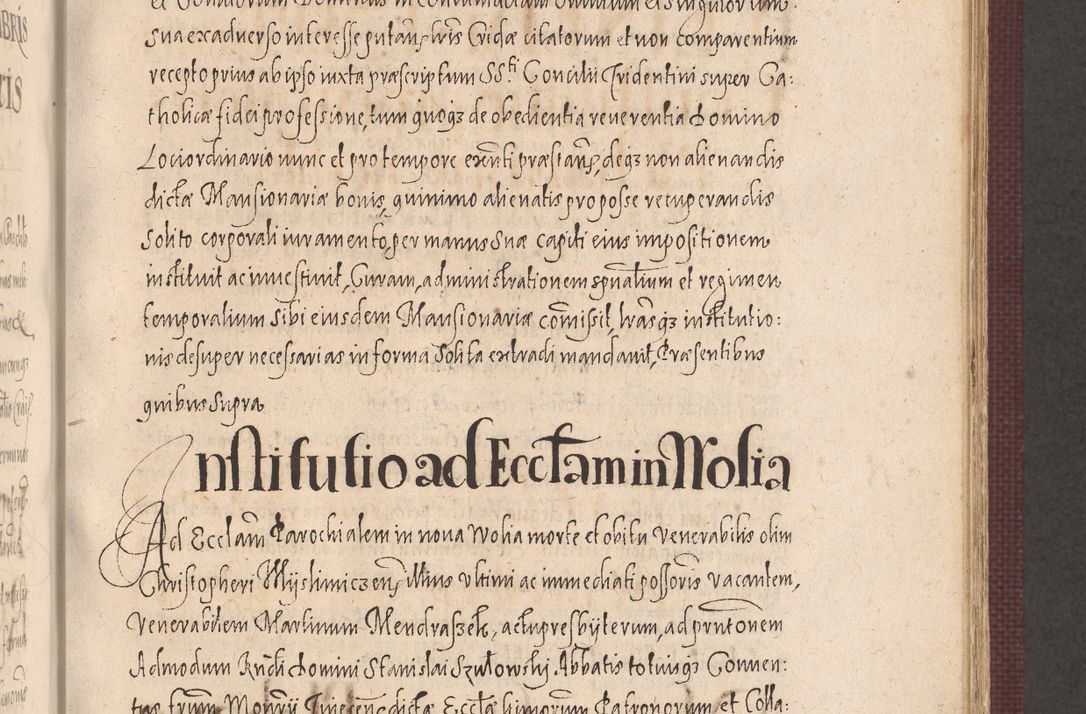 sua ex adverso interesse putan, lris Cridae citatorum et non comparentium
recepto prius ab ipso iuxta praescriptum SS.ti Concilii Tridentini super Ca:
tholicae fidei professione, tum quoqz de obedientia reverentia domino
Loci ordinario nunc et pro tempore exnti praestan, deqz non alienandis
dictae Mansionariae bonis, quinimo alienatis pro posse recuperandis
solito corporali iuramento, per manus suae capiti eius impositionem
instituit ac investivit, Curam, administrationem spualium et regimen
temporalium sibi eiusdem Mansionariae comisit, lrasqz institutio:
nis desuper necessarias in forma solita extradi mandavit, Praesentibus
quibus supra
Institutio ad Ecclam in Wolia
Ad Ecclam Parochialem in nova Wolia morte et obitu venerabilis olim
Christopheri Myslimiczen, illius ultimi ac immediati possoris vacantem,
Venerabilem Martinum Mendraszek, actu presbyterum, ad prntonem
Admodum Rndi domini Stanislai Szulowskj Abbatis totiusqz Conven:
tus frum Monrii dictae Ecclae Patronorum et Colla: